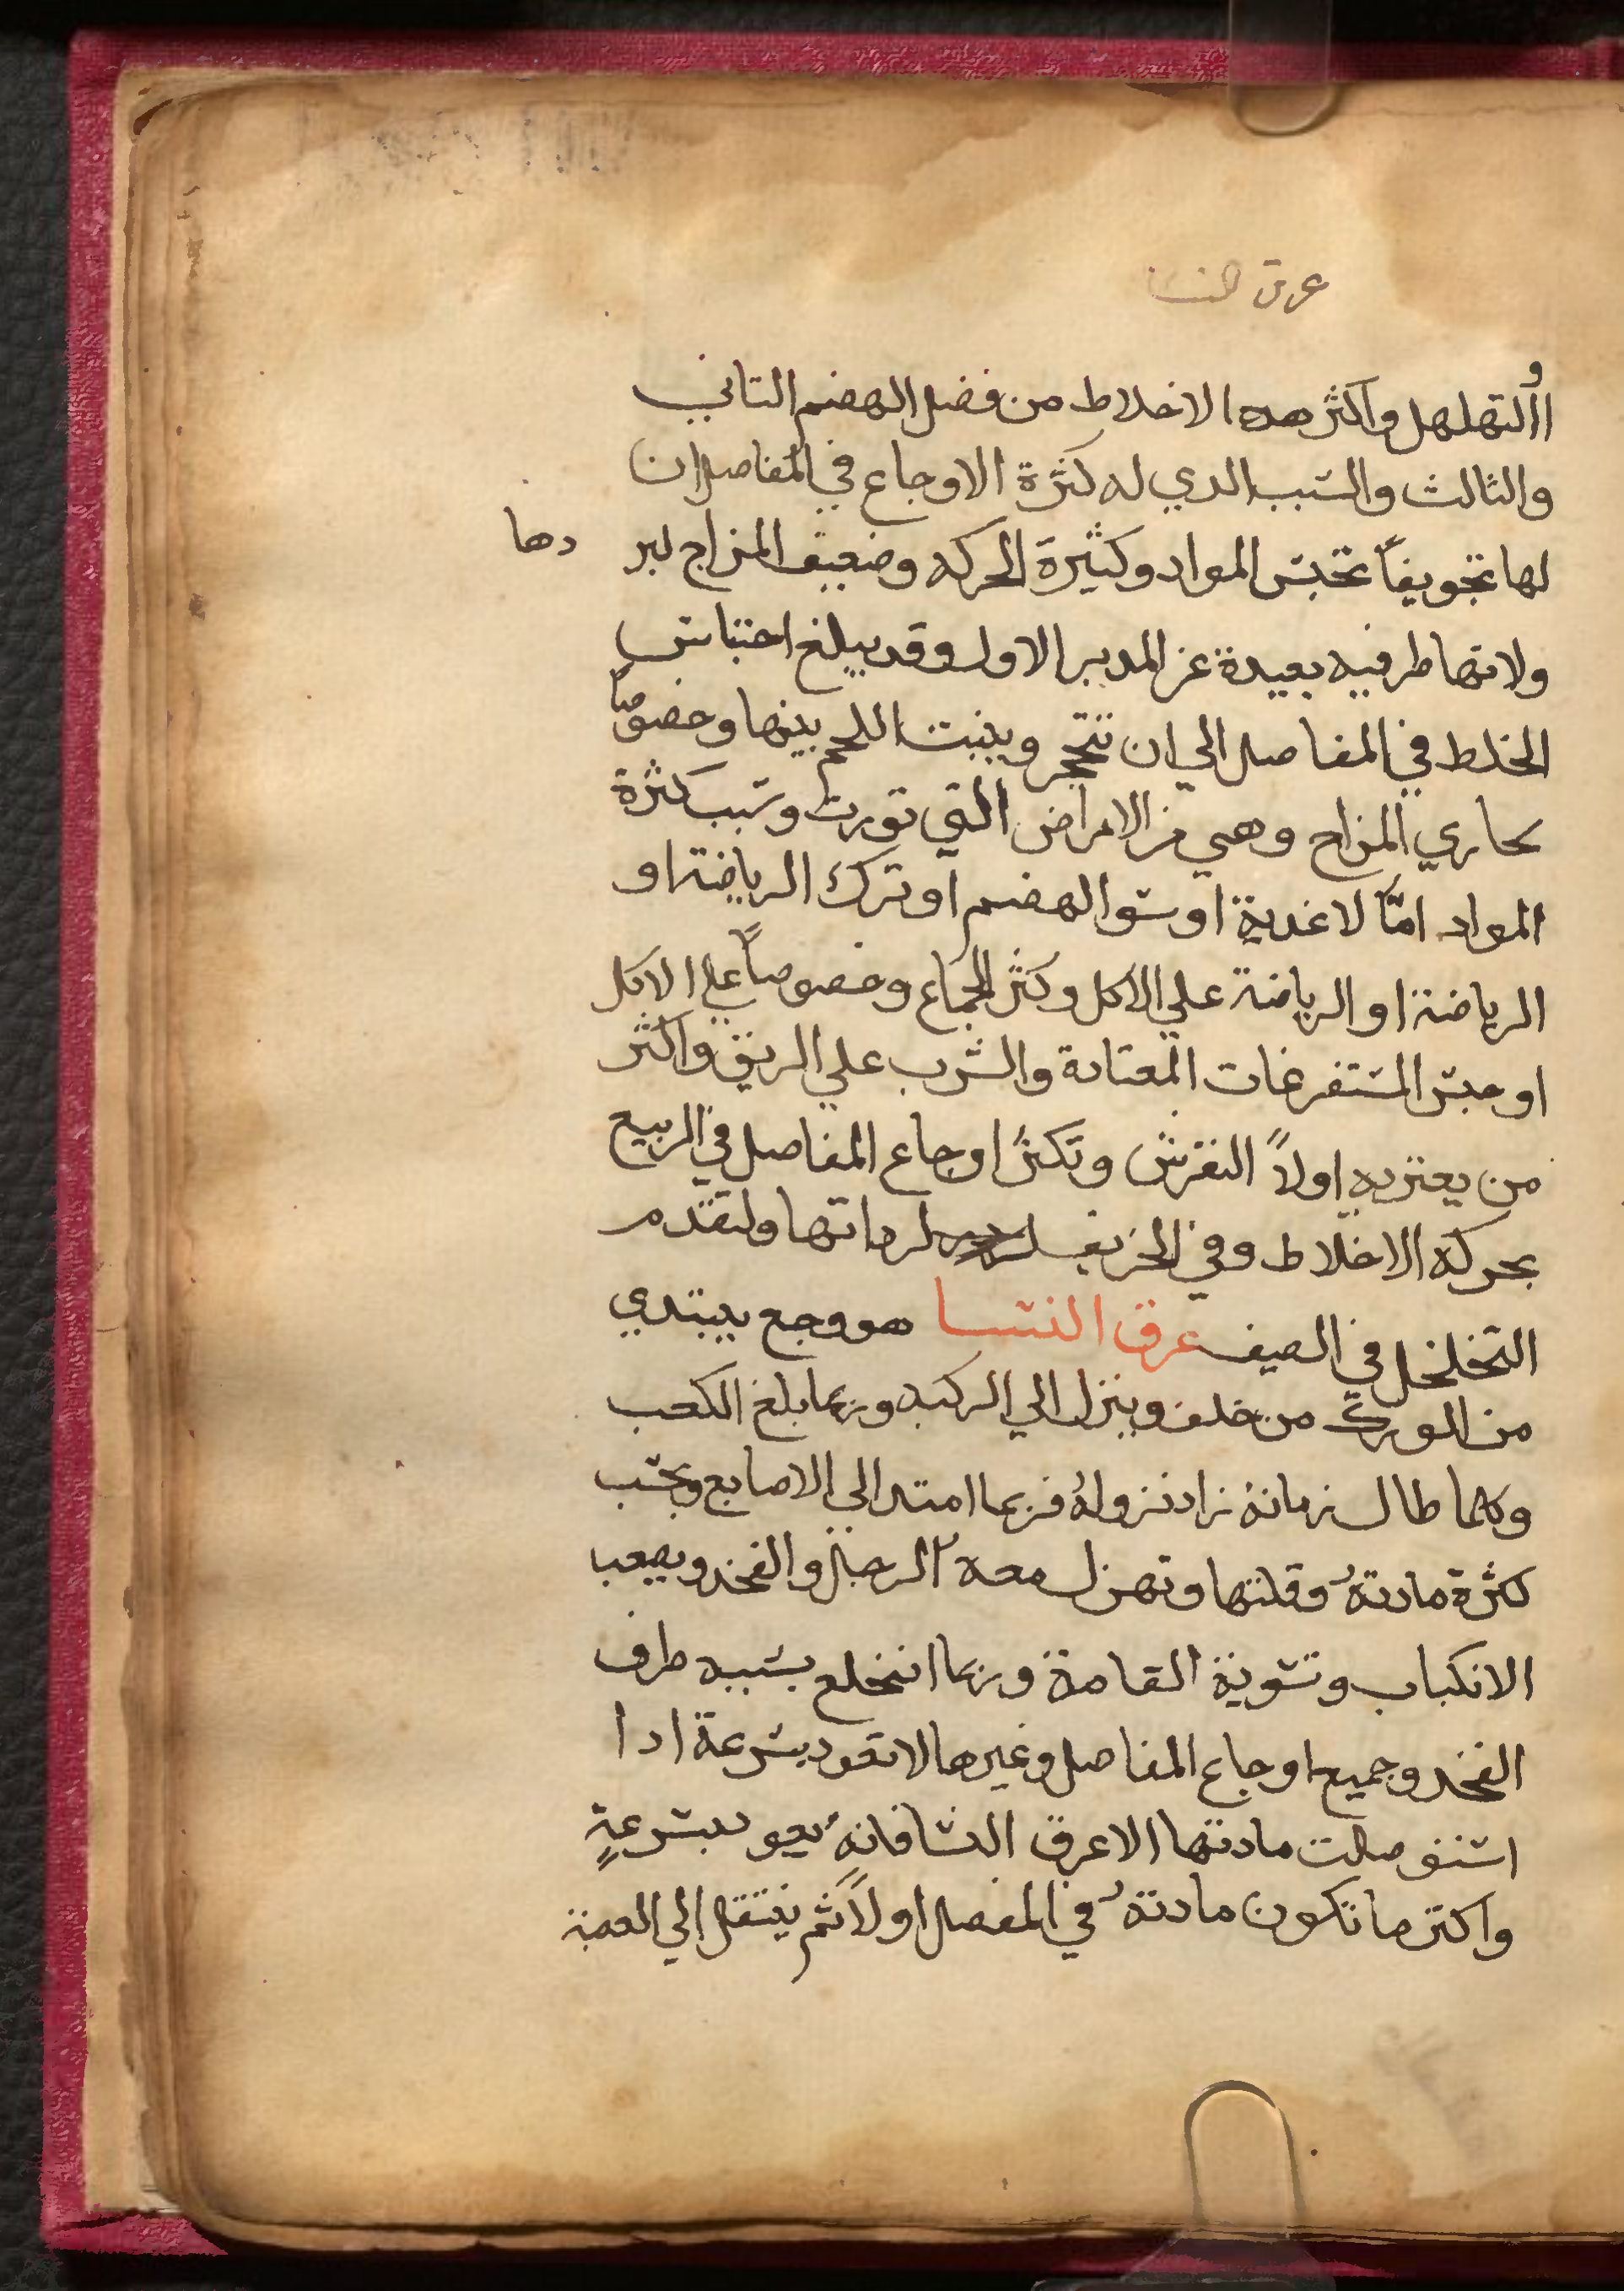 عرق النسا
او التهلهل واكثر هده الاخلاط من فضل الهضم التاني
والثالث والسبب الدي له كثرة الاوجاع في المفاصل ان
لها تجويفاً تحبس المواد وكثيرة الحركه وضعيف المزاج لبردها
ولانها طرفيه بعيدة عن المدبر الاول وقد يبلغ احتباس
الخلط في المفاصل الي ان تتحجر وينبت اللحم بينها وخصوصاً
بحاري المزاح وهي من الامراض التي تورث وسبب كثرة
المواد امّا لاغدية او سوا الهضم او ترك الرياضة او
الرياضة او الرياضة علي الاكل وكثر الجماع وخصوصاً علي الاكل
او حبس المستفرغات المعتادة والشرب علي الريق واكثر
من يعتريه اولاً النقرس وتكثر اوجاع المفاصل في الربيع
بحركه الاخلاط وفي الخريف لرداتها ولتقدم
التخلخل في الصيف عرق النسا هو وجع يبتدي
من الورك من خلف وينزل الي الركبه وربما بلغ الكعب
وكلما طال زمانهُ زاد نزولهُ فربما امتد الي الاصابع وبحسب
كثرة مادتهُ وقلتها وتهزل معهُ الرجل والفخد ويصعب
الانكباب وتسوية القامة وربما انخلع بسببه طرف
الفخد وجميع اوجاع المفاصل وغيرها لا تعود بسرعة ادا
استفصلت مادتها الا عرق النسا فانهُ يعود بسرعةٍ
واكثر ما تكون مادتهُ في المفصل اولاً ثم ينتقل الي العصبة